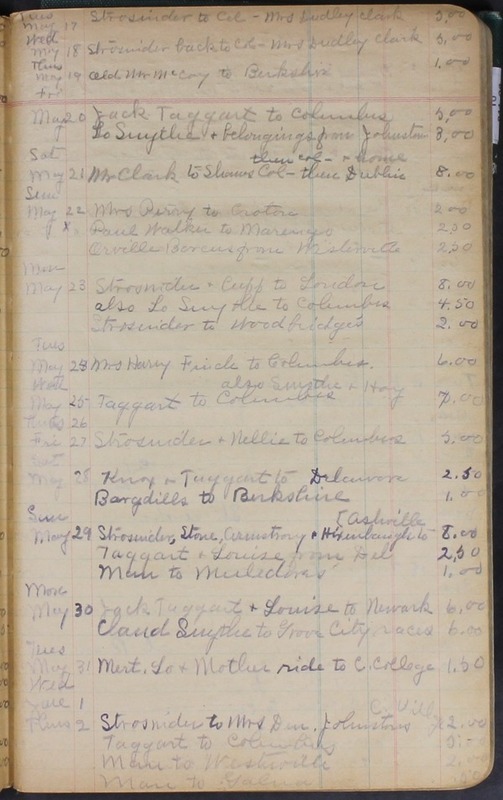 Tues
May 17 Strosnider to Col - Mrs Dudley Clark 5,00
Wed
May 18 Strosnider back to Col - Mrs Dudley Clark 5,00
Thurs
May 19 Old Mr McCoy to Berkshire 1,00
Fri
May 20 Jack Taggart to Columbus 5,00
Lo Smythe + Belongings from Johnston 3,00
Sat then Col - + Home
May 21 Mr Clark to Col - then Dublin 8.00
Sun
May 22 Mrs Perry to Croton 2 00
Paul Walker to Marengo 2,50
Orville from Westerville 2,50
Mon
May 23 Strosnider + Cupp to London 8.00
also Lo Smythe to Columbus 4.50
Strosnider to Woodbridges 2.00
Tues
May 24 Mrs Harry Finch to Columbus. 6.00
Wed also Smythe +
May 25 Taggart to Columbus 7,00
Thurs 26
Fri 27 Strosnider + Nellie to Columbus 5,00
Sat
May 28 Knox + Taggart to Delaware 2.50
Bargdills to Berkshire 1.00
Sun [Ashville
May 29 Strosnider, Stone, Armstrong + to 8.00
Taggart + Louise from Del 2,50
Man to 1.00
Mon
May 30 Jack Taggart + Louise to Newark 6,00
Claud Smythe to Grove City races 6.00
Tues
May 31 Mert. Lo + Mother ride to C. College 1.50
Wed
June 1
Thurs 2 Strosnider to Mrs Johnston 2.00
Taggart to Columbus 5.00
Man to 2.00
Man to Galena